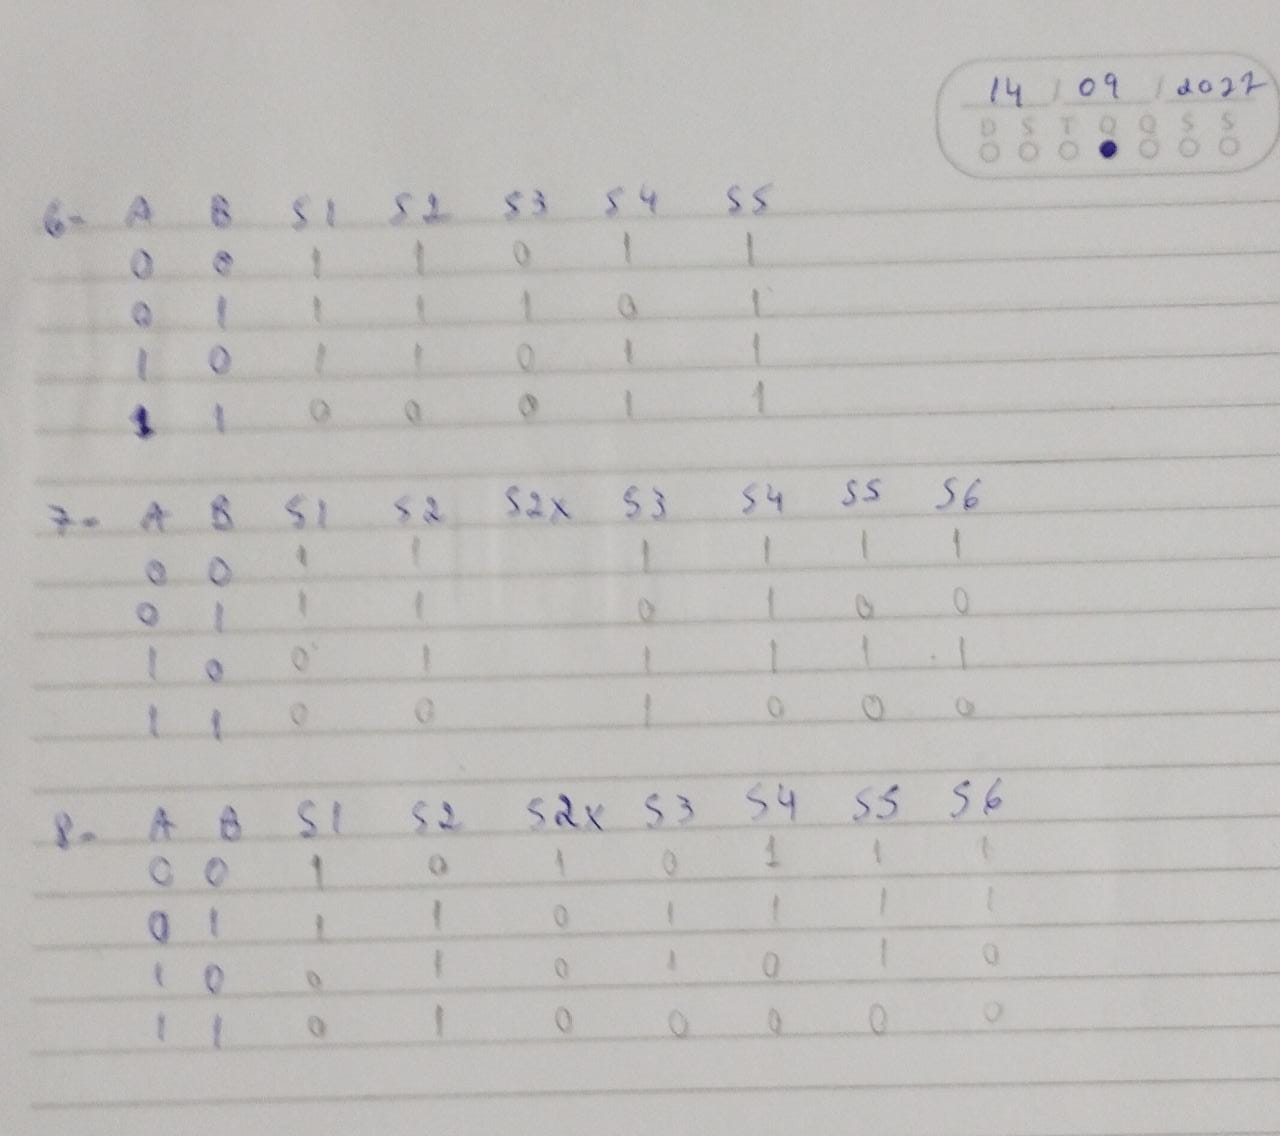 14 / 09 / 2022
D S T Q Q S S
6- A B S1 S2 S3 S4 S5
0 0 1 1 0 1 1
0 1 1 1 1 0 1
1 0 1 1 0 1 1
1 1 0 0 0 1 1
7- A B S1 S2 S2x S3 S4 S5 S6
0 0 1 1 1 1 1 1
0 1 1 1 0 1 0 0
1 0 0 1 1 1 1 1
1 1 0 0 1 0 0 0
8- A B S1 S2 S2x S3 S4 S5 S6
0 0 1 0 1 0 1 1 1
0 1 1 1 0 1 1 1 1
1 0 0 1 0 1 0 1 0
1 1 0 1 0 0 0 0 0